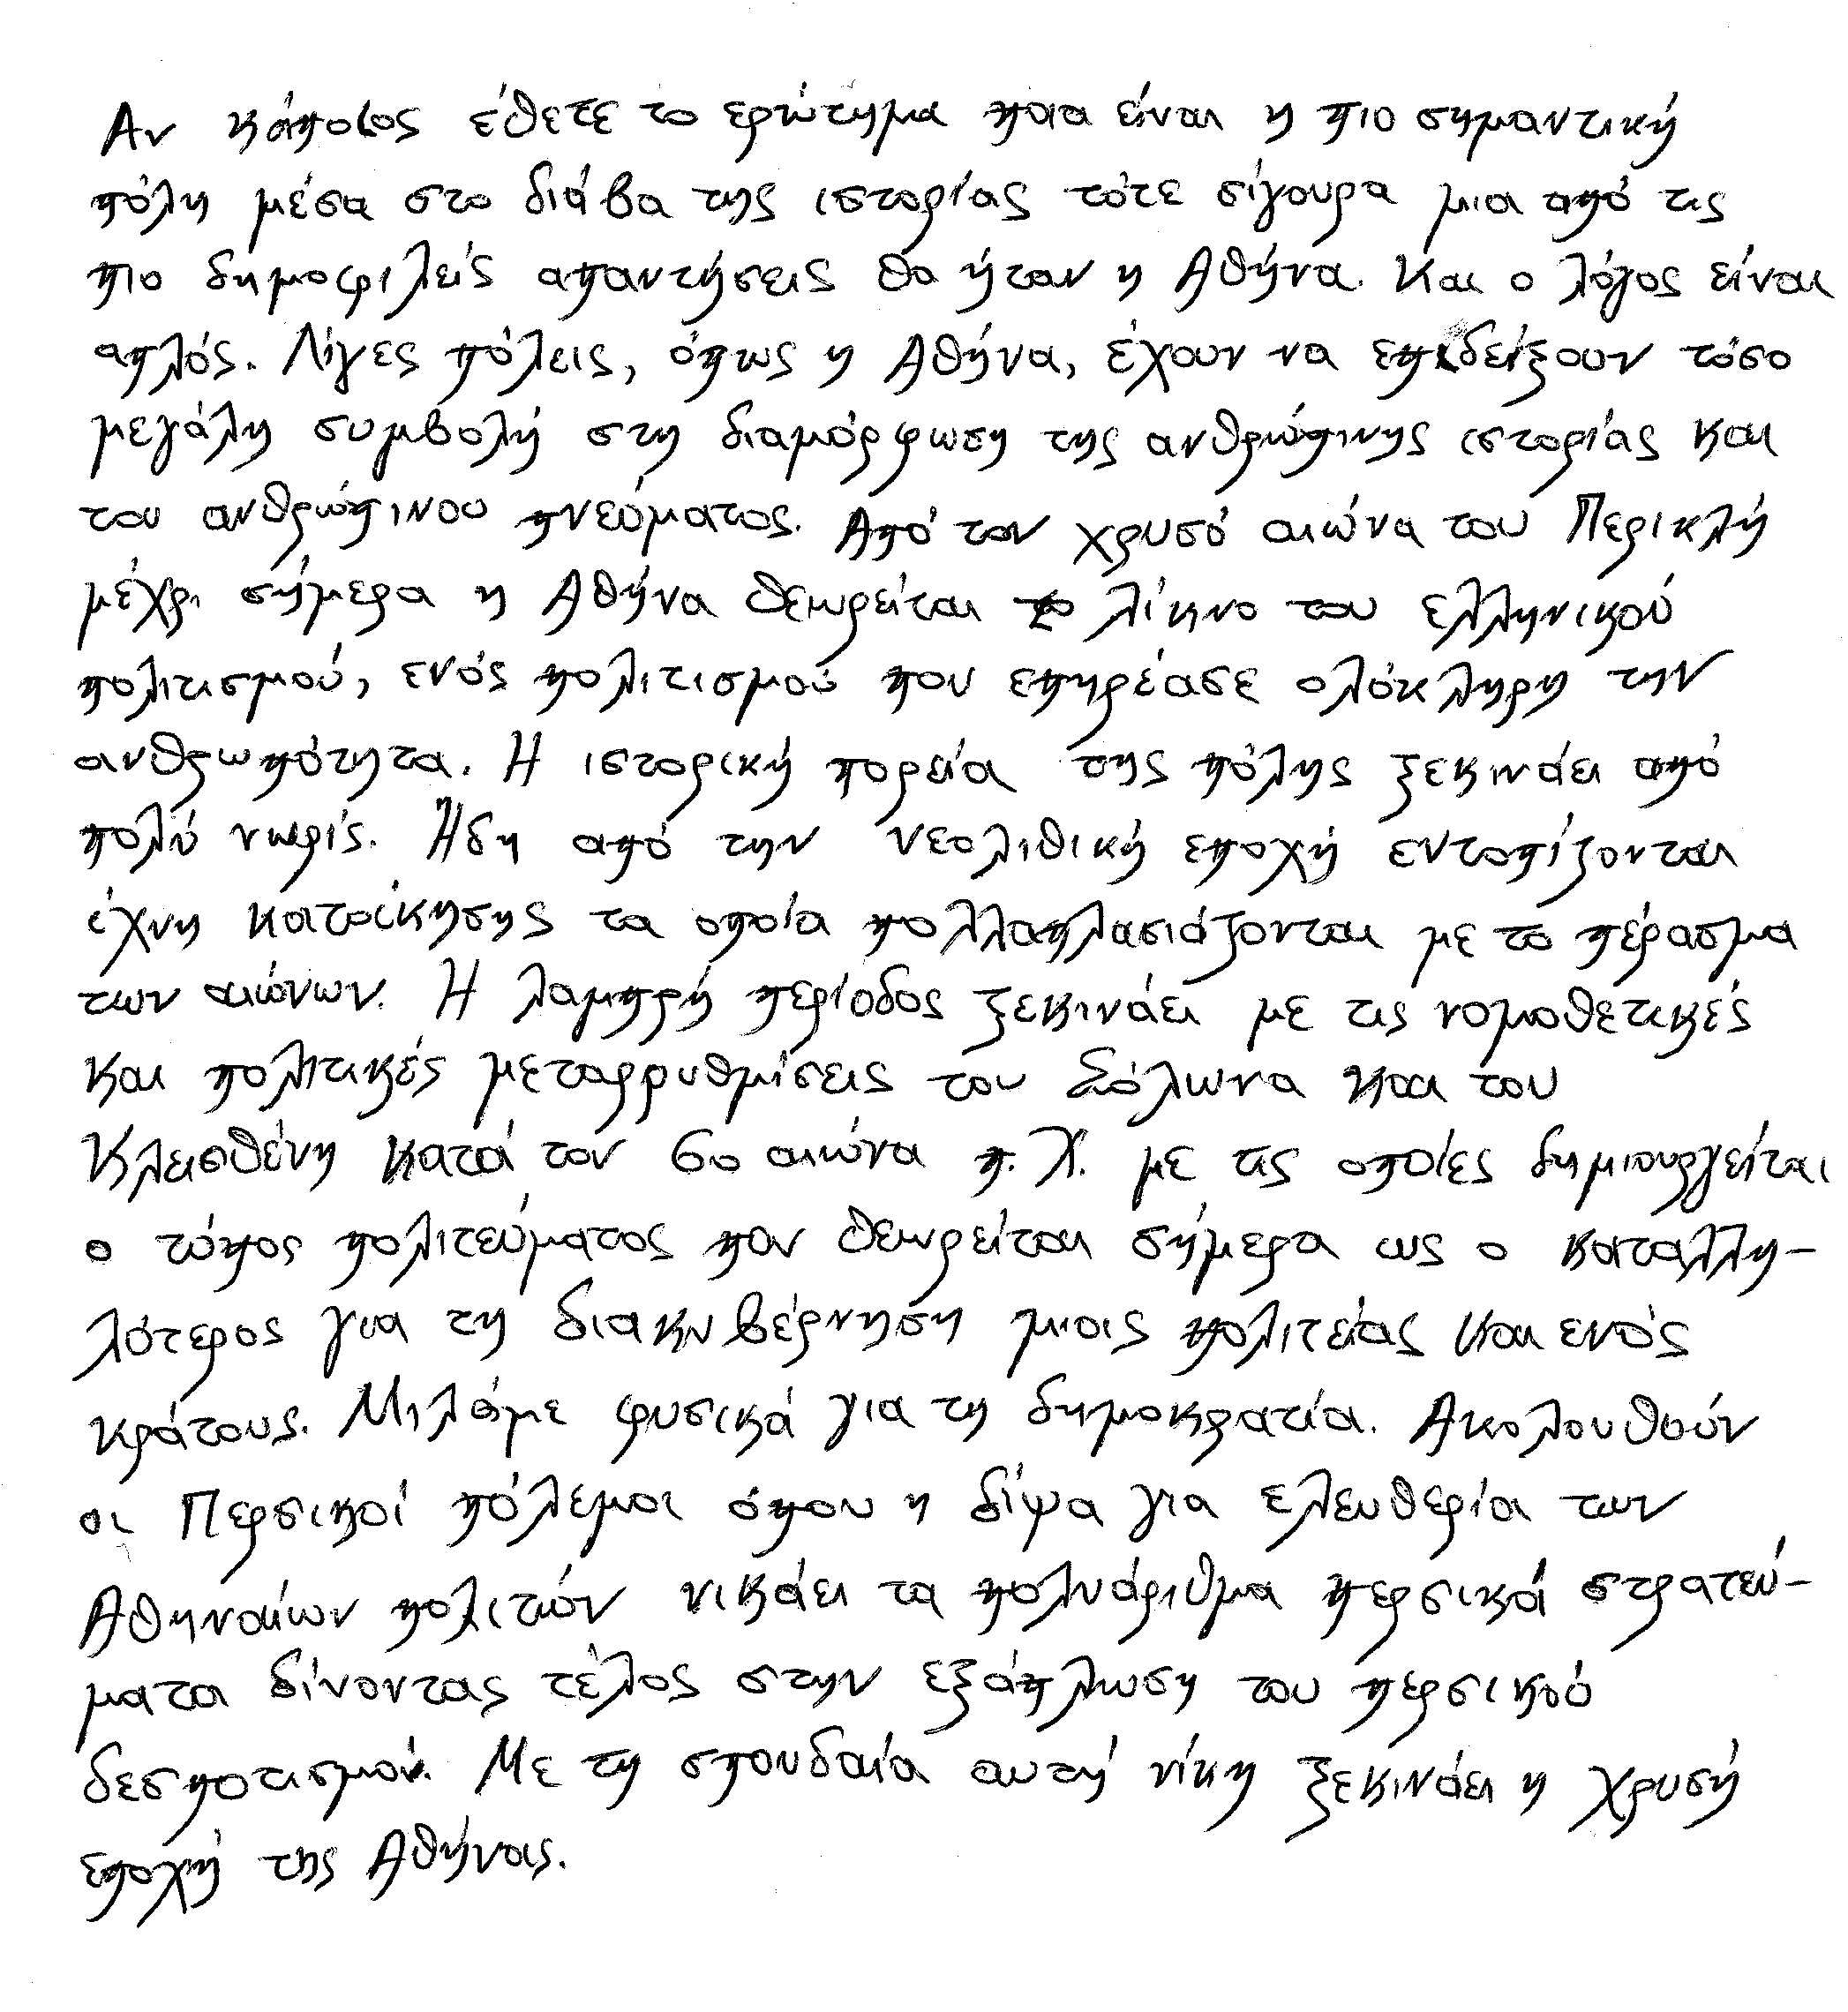 Αν κάποιος έθετε το ερώτημα ποια είναι η πιο σημαντική
πόλη μέσα στο διάβα της ιστορίας τότε σίγουρα μια από τις
πιο δημοφιλείς απαντήσεις θα ήταν η Αθήνα. Και ο λόγος είναι
απλός. Λίγες πόλεις, όπως η Αθήνα, έχουν να επιδείξουν τόσο
μεγάλη συμβολή στη διαμόρφωση της ανθρώπινης ιστορίας και
του ανθρώπινου πνεύματος. Από τον χρυσό αιώνα του Περικλή
μέχρι σήμερα η Αθήνα θεωρείται το λίκνο του ελληνικού
πολιτισμού, ενός πολιτισμού που επηρέασε ολόκληρη την
ανθρωπότητα. Η ιστορική πορεία της πόλης ξεκινάει από
πολύ νωρίς. Ήδη από την νεολιθική εποχή εντοπίζονται
ίχνη κατοίκησης τα οποία πολλαπλασιάζονται με το πέρασμα
των αιώνων. Η λαμπρή περίοδος ξεκινάει με τις νομοθετικές
και πολιτικές μεταρρυθμίσεις του Σόλωνα και του
Κλεισθένη κατά τον 6ο αιώνα π.Χ. με τις οποίες δημιουργείται
ο τύπος πολιτεύματος που θεωρείται σήμερα ως ο καταλλη-
λότερος για τη διακυβέρνηση μιας πολιτείας και ενός
κράτους. Μιλάμε φυσικά για τη δημοκρατία. Ακολουθούν
οι Περσικοί πόλεμοι όπου η δίψα για ελευθερία των
Αθηναίων πολιτών νικάει τα πολυάριθμα περσικά στρατεύ-
ματα δίνοντας τέλος στην εξάπλωση του περσικού
δεσποτισμού. Με τη σπουδαία αυτή νίκη ξεκινάει η χρυσή
εποχή της Αθήνας.